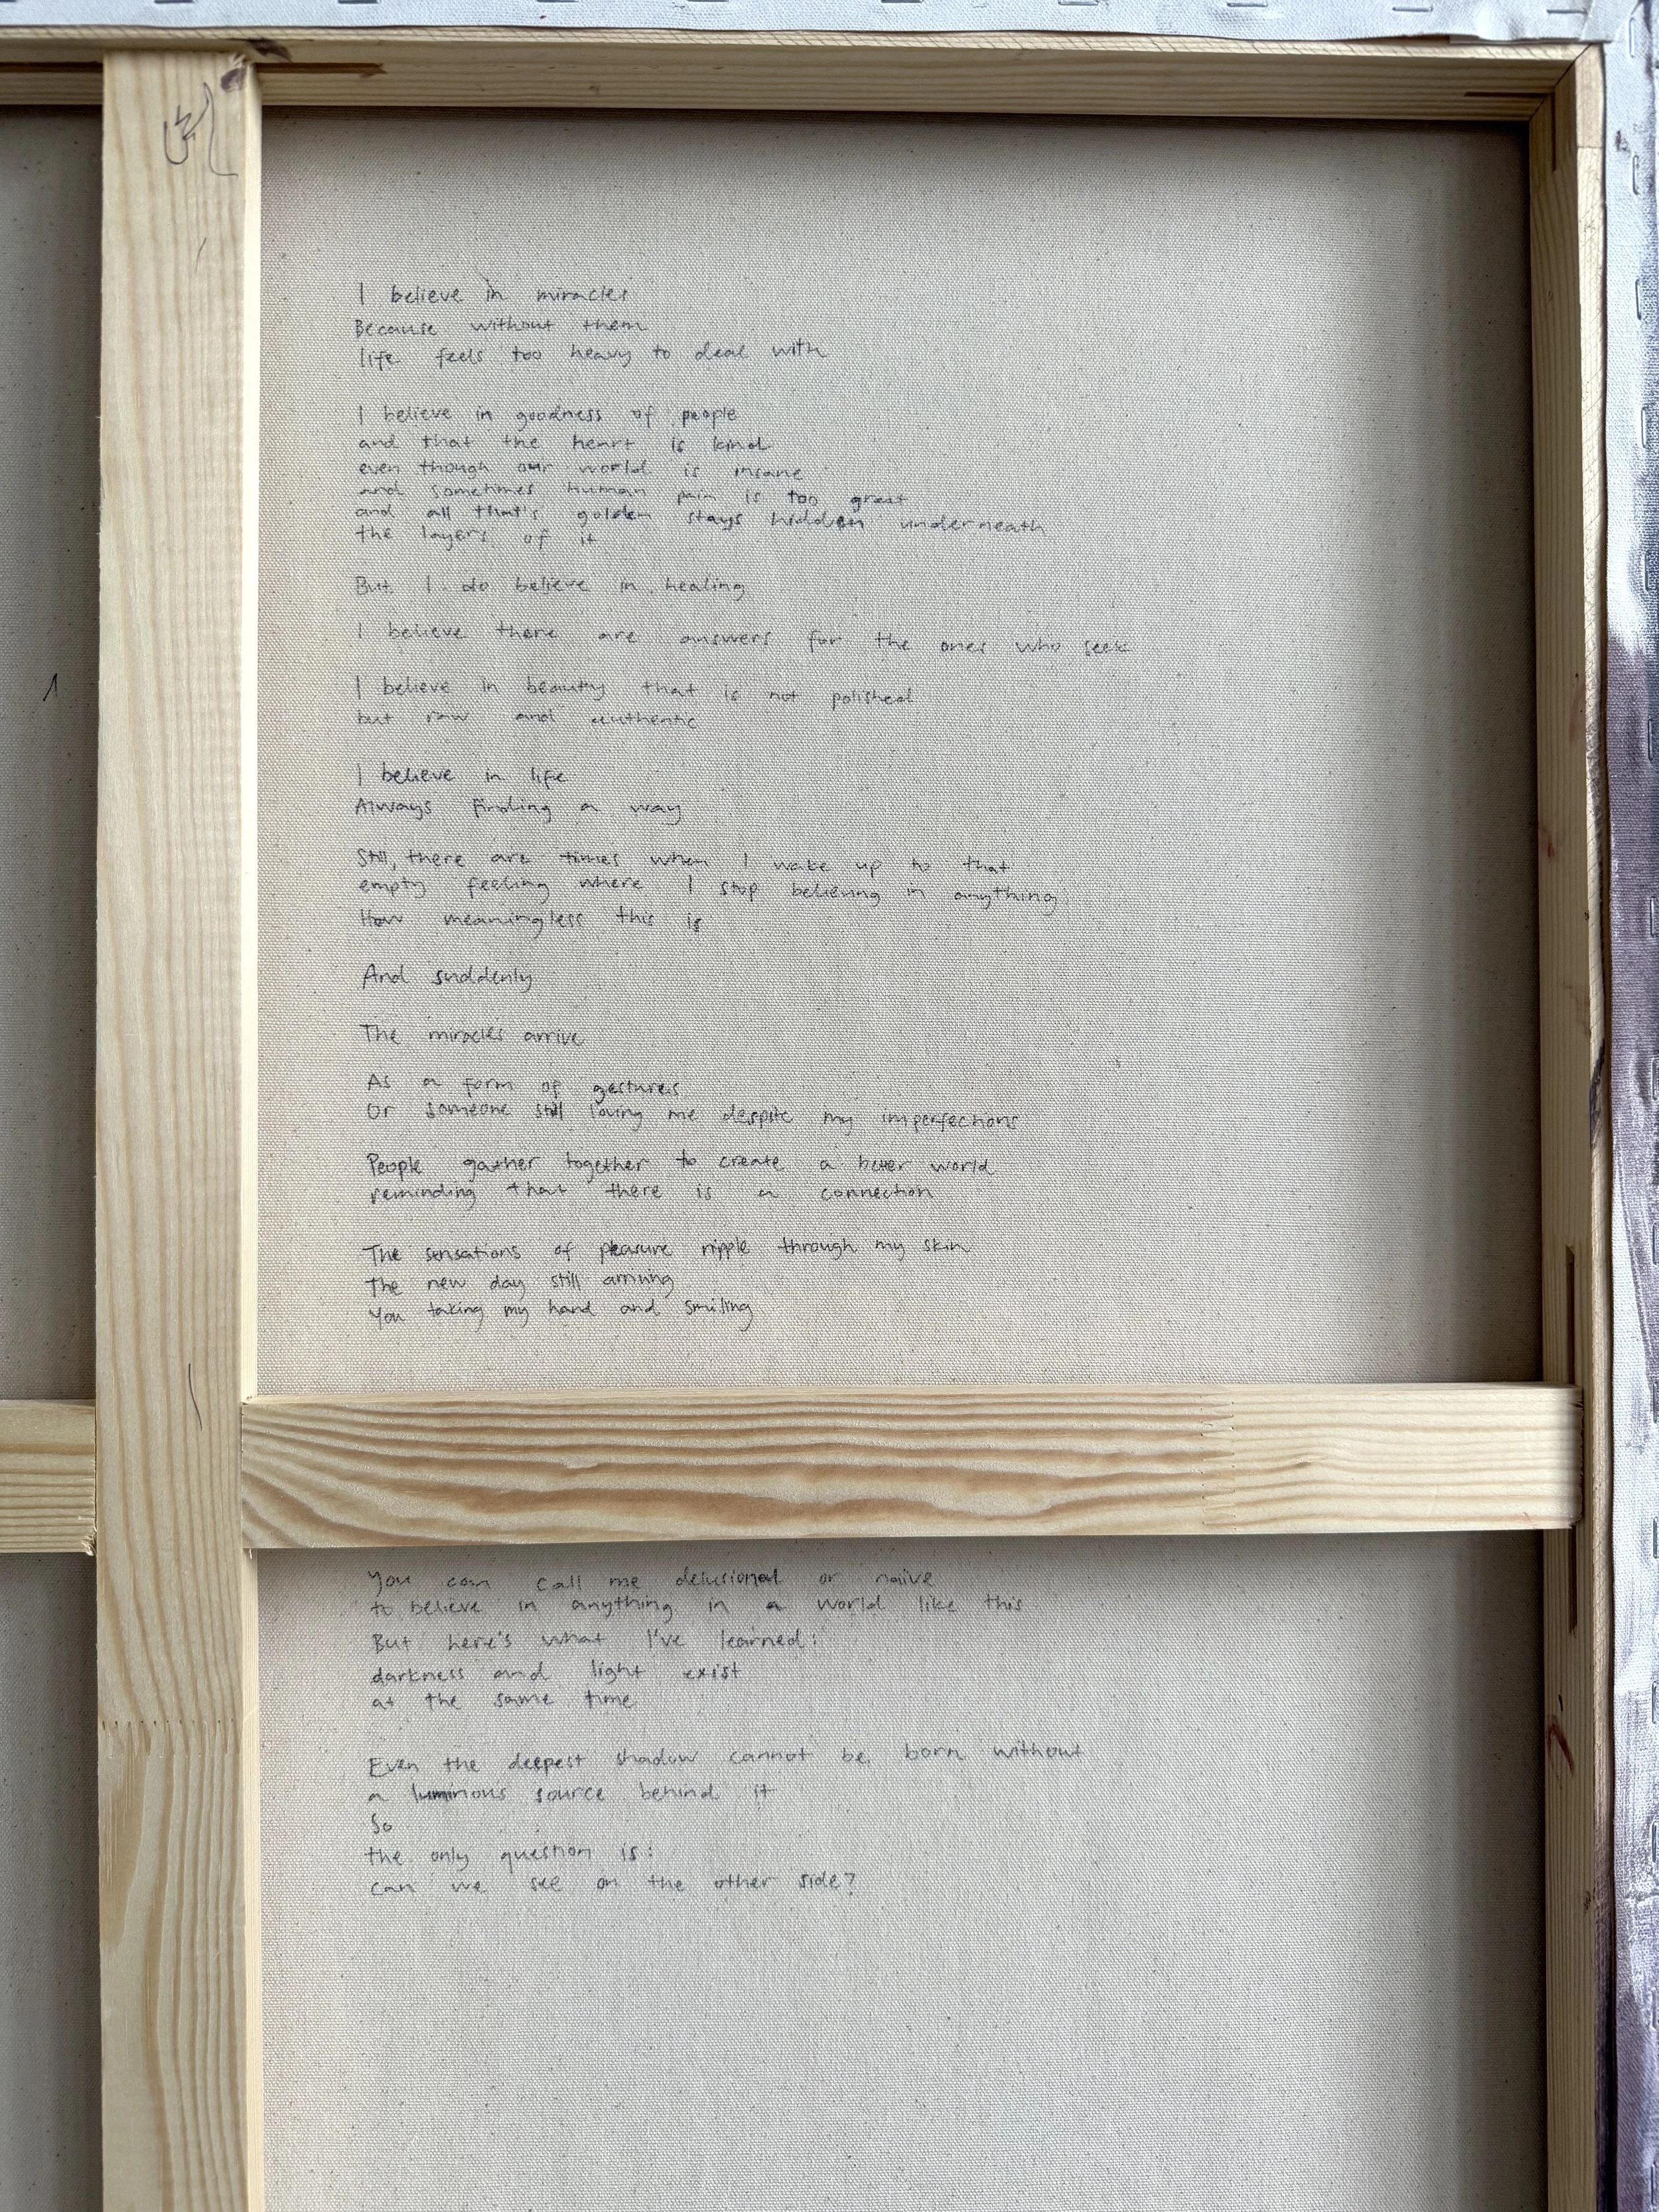 I believe in miracles
Because without them
life feels too heavy to deal with
I believe in goodness of people
and that the heart is kind
even though our world is insane
and sometimes human pain is too great
and all that's golden stays hidden underneath
the layers of it
But I do believe in healing
I believe there are answers for the ones who seek
I believe in beauty that is not polished
but raw and authentic
I believe in life
Always finding a way
Still, there are times when I wake up to that
empty feeling where I stop believing in anything
How meaningless this is
And suddenly
The miracles arrive
As a form of gestures
Or someone still loving me despite my imperfections
People gather together to create a better world
reminding that there is a connection
The sensations of pleasure ripple through my skin
The new day still arriving
You taking my hand and smiling
You can call me delusional or naive
to believe in anything in a world like this
But here's what I've learned:
darkness and light exist
at the same time
Even the deepest shadow cannot be born without
a luminous source behind it
So
the only question is:
can we see on the other side?